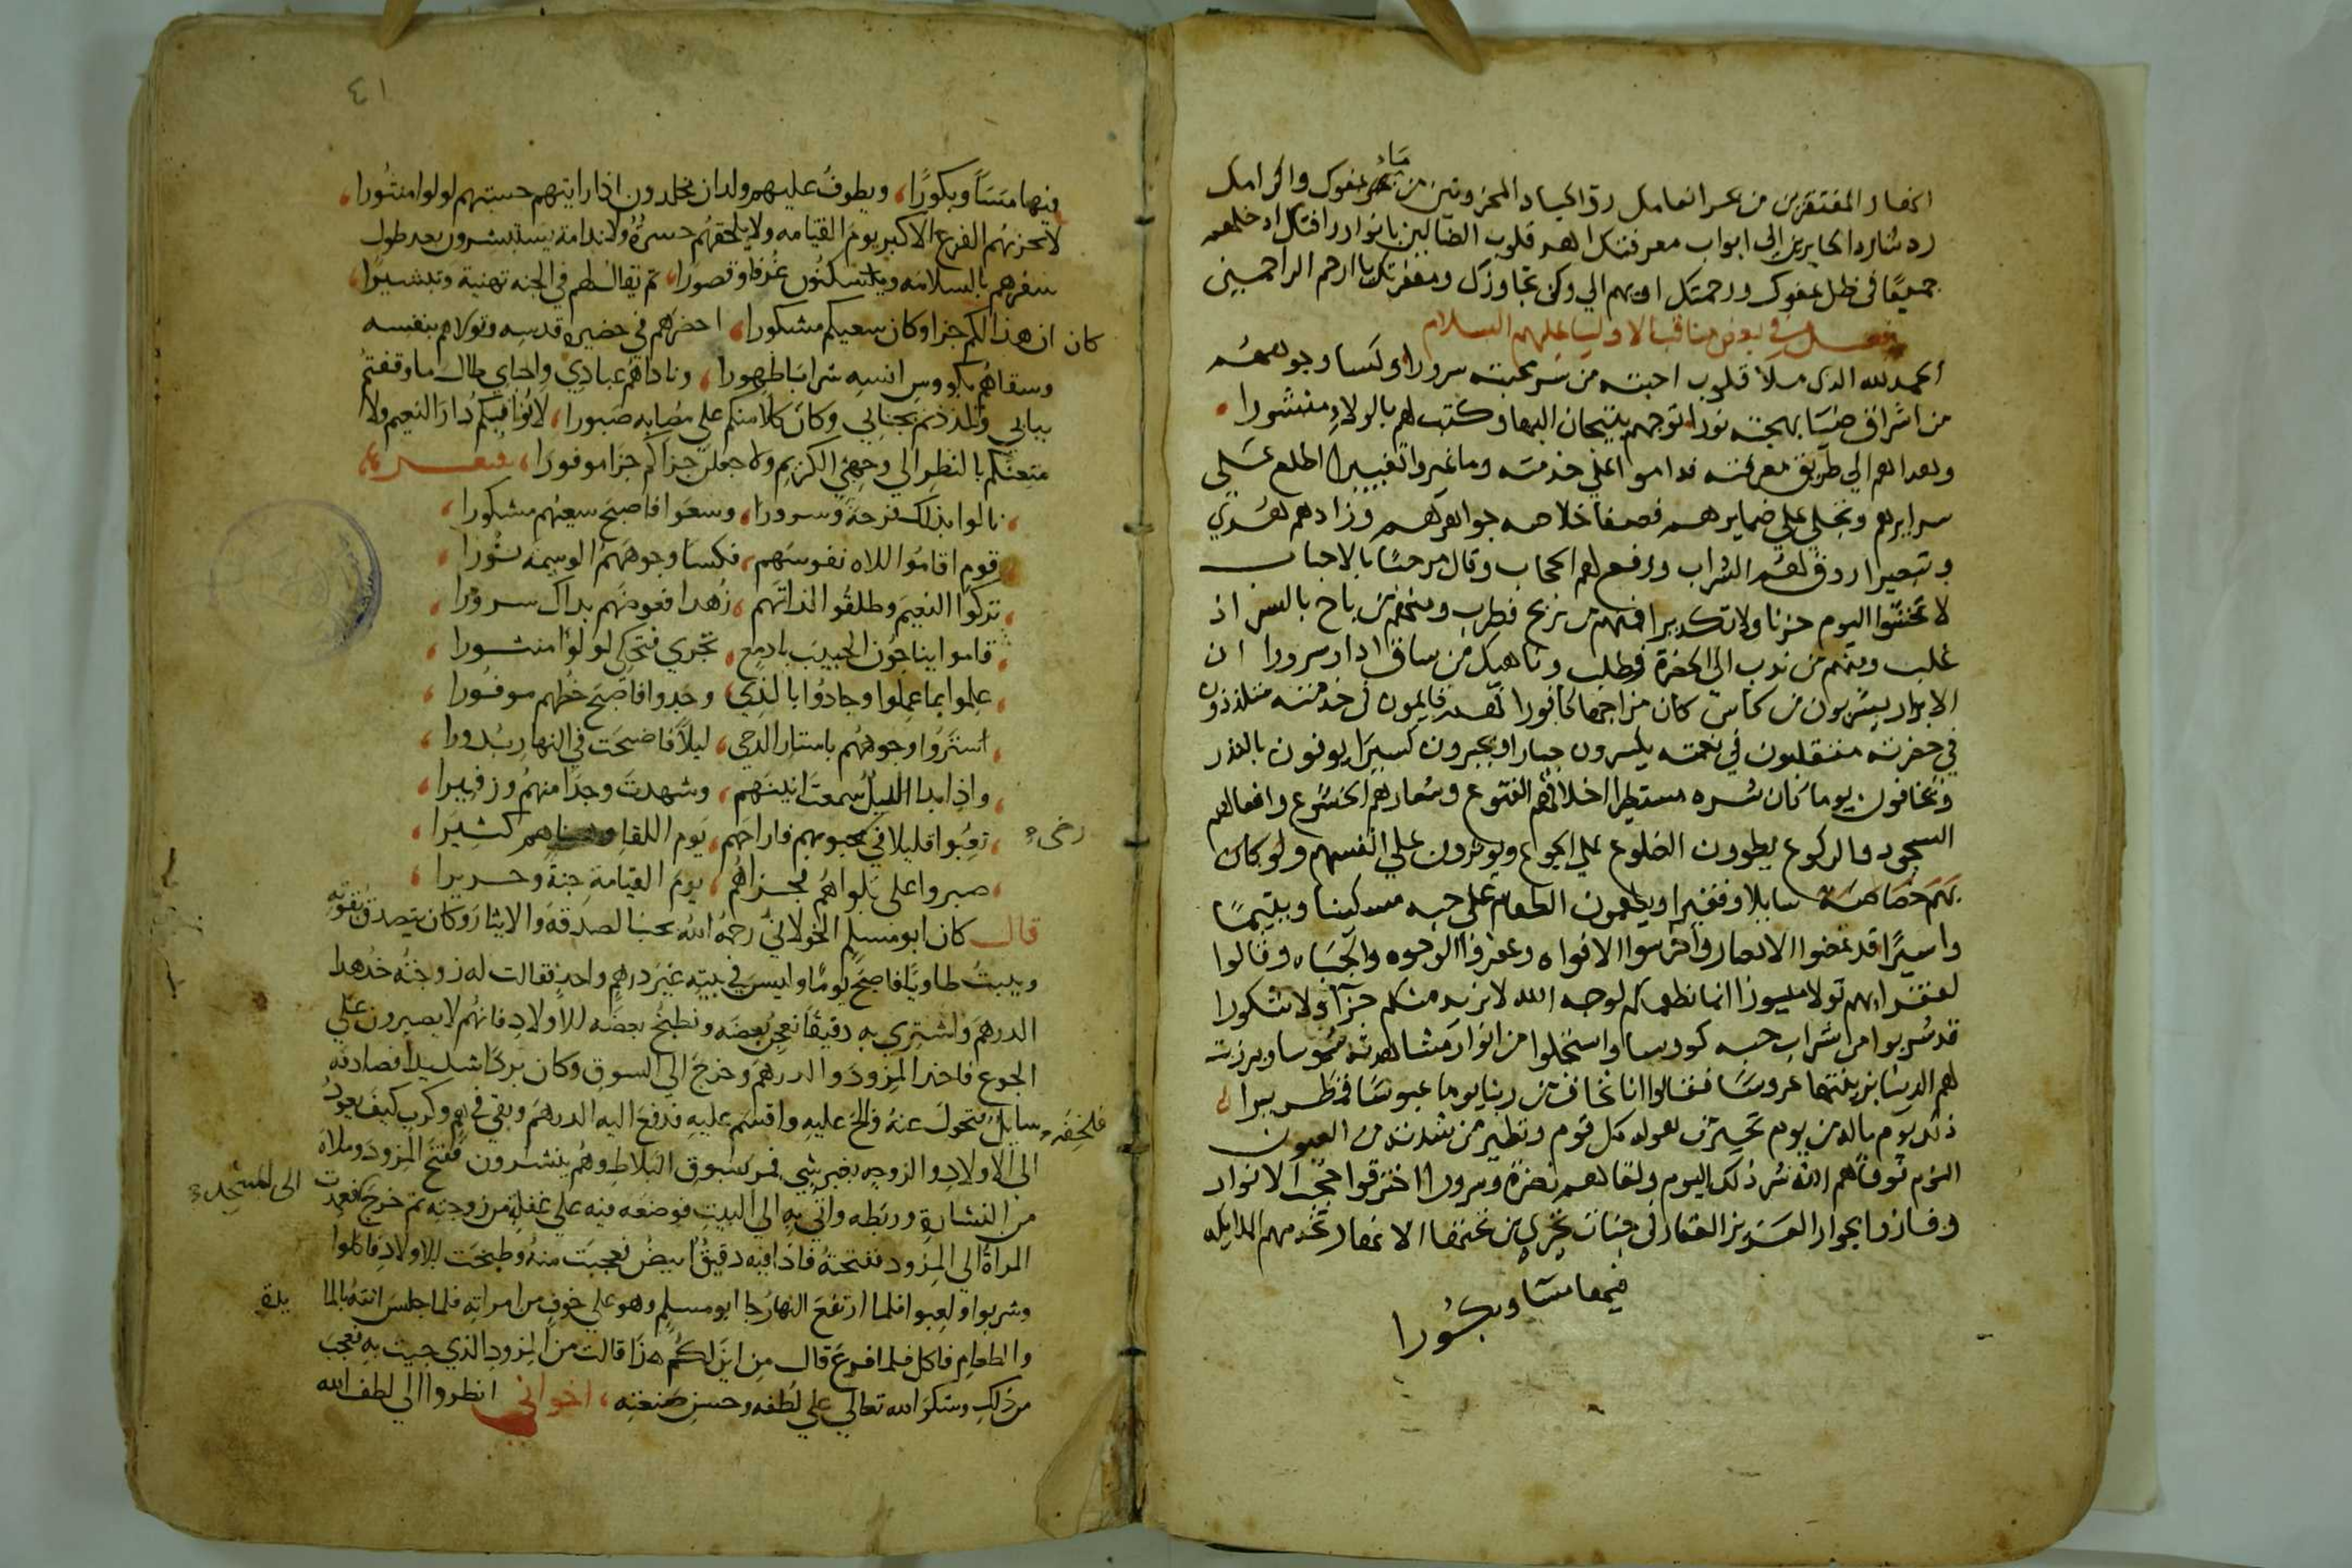 جميعًا في ظل عفوك ورحمتك اويهم الي وكن تجاوزك ومغفرتك يا ارحم الراحمين
فصل في بعض مناقب الاوليا عليهم السلام
الحمد لله الذى ملأ قلوب احبته من سر محبته سرورا وكسا وجوههم
من اشراق ضيا بهجته نورا توجهم بتيجان البها وكتب لهم بالولاء منشورا
وهداهم الي طريق معرفته فداموا علي خدمته وما غيروا تغييرا اطلع على
سرايرهم وتجلي علي ضمايرهم فصفا خلاصه جواهرهم وزادهم هدي
وتبصيرا روق لهم الشراب ورفع لهم الحجاب وقال مرحبًا بالاحباب
لا تخشوا اليوم حزنا ولا تكديرا فمنهم من فطرب ومنهم من باح بالسر اذ
غلب ومنهم من ندب الى الحضرة فطلب وناهيك من ساق ادار سرورا ان
الابرار يشربون من كاس كان مزاجها كافورا فهم قايمون في خدمته متلذذون
في حضرته متقلبون في نعمته يكسرون جبارا ويجبرون كسيرا يوفون بالنذر
ويخافون يوما كان شره مستطيرا اخلاقهم القنوع وشعارهم الخشوع وافعالهم
السجود والركوع يطوون الضلوع علي الجوع ويوثرون علي انفسهم ولو كان
بهم خصاصة سايلا وفقيرا ويطعمون الطعام على حبه مسكينا ويتيمًا
واسيرًا قد غضوا الابصار واخرسوا الافواه وعفروا الوجوه والجباه وقالوا
لفقرايهم قولا ميسورا انما نطعمكم لوجه الله لا نريد منكم جزآء ولا شكورا
قد شربوا من شراب حبه كووسا واستجلوا من انوار مشاهدته شموسا وبرزت
لهم الدنيا بزينتها عروسًا فقالوا انا نخاف من ربنا يوما عبوسًا قمطريرا
ذلك يوم ياله من يوم تحير من هوله كل قوم وتطير من شدته من العيون
النوم فوقاهم الله شر ذلك اليوم ولقاهم نضرة وسرورا اخترقوا حجب الانوار
وفازوا بجوار العزيز الغفار في جنات تجري من تحتها الانهار تخدمهم الملايكه
فيها مسًا وبكُورا
٤١
فيها مَسَآ وبكورًا، ويطوفُ عليهم ولدان مخلدون اذا رايتهم حسبتهم لولوا منثُورا،
لا يحزنهُم الفزع الاكبر يوم القيامه ولا يلحقهُم حسرةٌ ولا ندامة يستبشرون بعد طول
سفرهم بالسلامة ويسكنُون غُرفا وقصورًا، ثم يقال لهم في الجنه تهنية وتبشيرًا،
كان ان هذا لكم جزا وكان سعيكم مشكورا، احضرهم في حضيرة قدسِه وتولاهم بنفسه
وسقاهُم بكووس انسِه شرابَا طَهورا، وناداهُم عبادِي واحبَاي طال ما وقفتُم
ببابي وتلذذتم بجنابي وكان كلاً منكم علي مصَابِه صَبورا، لاُثيبكُم دَار النعيم ولا
متعنّكم بالنظر الي وجهي الكريم ولا جعلن جزاكم جزا موفورًا، شعر
نالوا بذلك فرحةً وسرورا، وسعَوا فاصبحَ سعيُهم مشكورا
قوم اقامُوا للاه نفوسَهم، فكسَا وجوهَهمُ الوسيمَه نُورا
تركُوا النعيمَ وطلقُوا لذاتَهم، زُهدا فعوضَهم بذاك سرورا
قاموا يناجُون الحبيبَ بادمعٍ، تجري فتحكي لولُوًا منثورا
عِلموا بما عمِلوا وجادُوا بالذي، وجَدوا فاصبح حُظهم موفُورا
استَرُوا وجوههُم باستار الدجي، ليلاً فاضحَت في النهار بُدورا
واذا بدا الليلُ سُمعت انينَهم، وشهدتَ وجدًا منهُم وزفِيرا
تعِبُوا قليلا في محبوبهم فاراحَهم، يَوم اللقا كثِيرا رضى
صبروا على بَلواهُم فجزاهُم، يومَ القيامةِ جنةً وحريرا
قال كان ابو مسلِم الخولانيُ رحمهُ الله يحبُ الصدقهَ والايثارَ وكان يتصدق بقُوتِهِ
ويبيتُ طاويًا فاصبحَ يومًا وليسَ في بيتِه غيرَ درهمٍ واحدٍ فقالت له زوجتهُ خُذ هذا
الدرهمَ واشتري بهِ دقيقًا نعجِنُ بعضَه ونطبخُ بعضَه للاولادِ فانهُم لا يصبرون علي
الجوع فاخذ المِزودَ والدرهمَ وخرجَ الي السوقِ وكان بردًا شديدًا فصادفَه
سايلٌ فتحولَ عنهُ فلحقه والحَ عليهِ واقسَم عليهِ فدفعَ اليه الدرهمَ وبقي في همٍ وكربٍ كيفَ يعودُ
الى الاولادِ والزوجِه بغير شيٍ فمر بسُوقِ البلاطِ وهُم ينشرون ففتحَ المزودَ وملاهُ
من النشارةِ وربَطه واتي به الي البيتِ فوضعَه فيه علي غفلةٍ من زوجتِه ثم خرجَ الى المسْجد فعمدت
المراة الي المِزود ففتحتهُ فاذا فيه دقيقٌ ابيضُ فعجنَت منهُ وطبخَت للاولادِ فاكلوا
وشربوا ولعِبوا فلما ارتفعَ النهارُ جا ابو مسلمٍ وهو علي خوفٍ من امراتِه فلما جلسَ اتتهُ بالمايدة
والطعامِ فاكل فلما افرغَ قال مِن اين لكُم هذَا قالت من المزودِ الذي جيت بهِ فعجبَ
من ذلكَ وشكرَ الله تعالي علي لُطفِه وحسنِ صَنعتِه، اخواني انظروا الي لطف الله